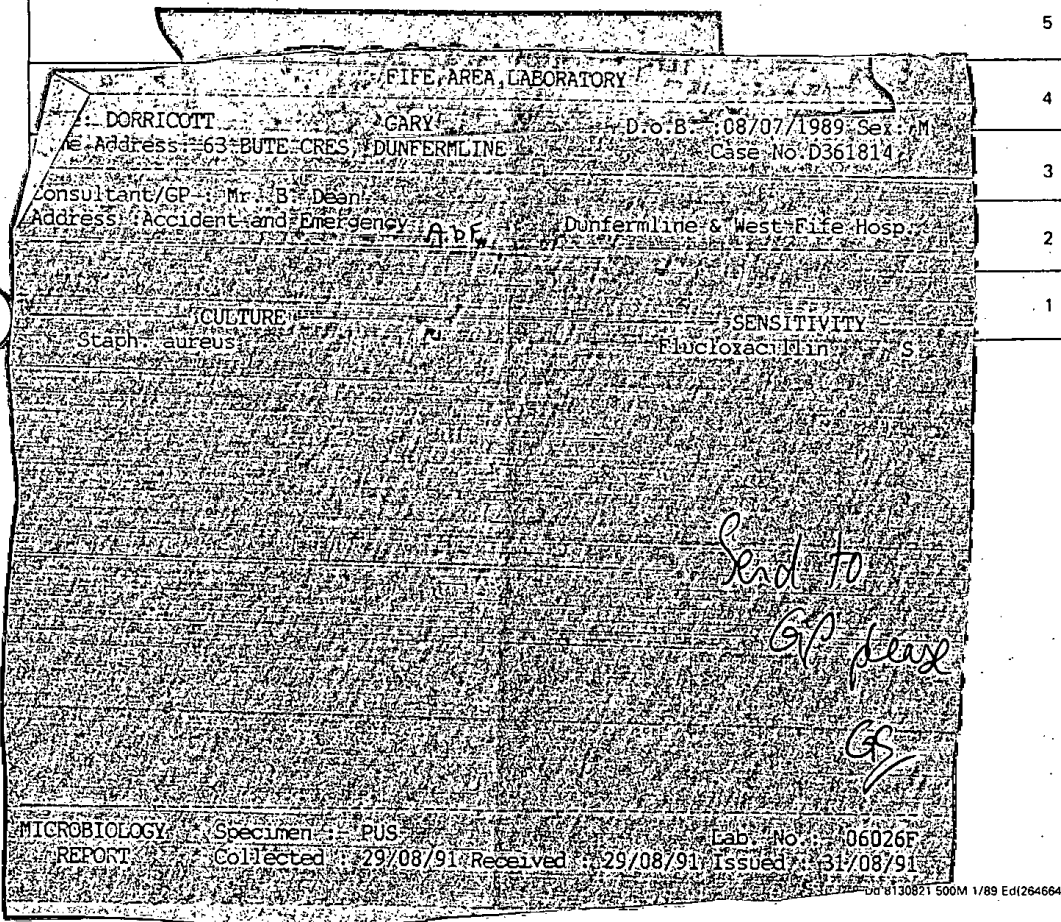 5
FIFE AREA LABORATORY
4
: DORRICOTT GARY D.o.B. : 08/07/1989 Sex: M
e Address: 63 BUTE CRES, DUNFERMLINE Case No.D361814
3
onsultant/GP : Mr. B. Dean
Address : Accident and Emergency Dunfermline & West Fife Hosp.
2
1
CULTURE SENSITIVITY
Staph. aureus Flucloxacillin S
Send to
GP please
GS
MICROBIOLOGY Specimen :- PUS Lab. No.: 06026F
REPORT Collected : 29/08/91 Received : 29/08/91 Issued : 31/08/91
Dd 8130821 500M 1/89 Ed(264664